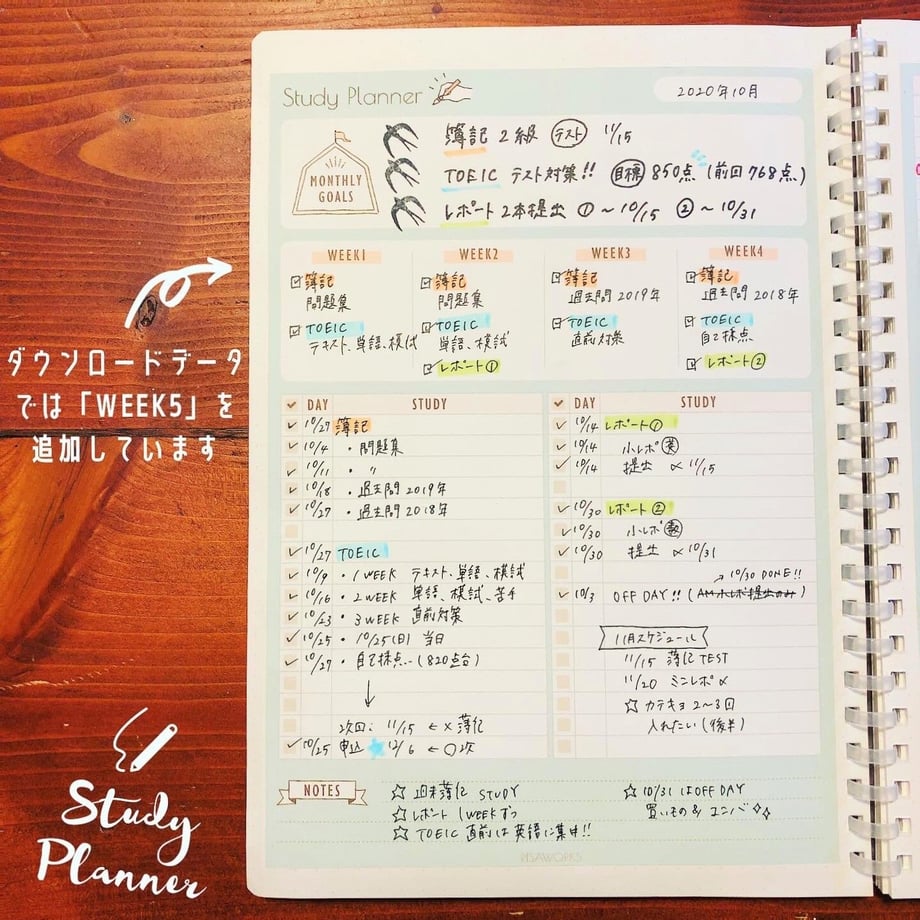 ダウンロードデータ
では「WEEK5」を
追加しています
Study
Planner
Study Planner
2020年10月
MONTHLY
GOALS
簿記 2級 テスト 11/15
TOEIC テスト対策!! 目標 850点 (前回768点)
レポート 2本提出 ①〜10/15 ②〜10/31
WEEK1
簿記
問題集
TOEIC
テキスト、単語、模試
WEEK2
簿記
問題集
TOEIC
単語、模試
レポート①
WEEK3
簿記
過去問 2019年
TOEIC
直前対策
WEEK4
簿記
過去問 2018年
TOEIC
自己採点
レポート②
DAY STUDY
10/27 簿記
10/4 ・問題集
10/11 ・ 〃
10/18 ・過去問 2019年
10/27 ・過去問 2018年
10/27 TOEIC
10/9 ・1WEEK テキスト、単語、模試
10/16 ・2WEEK 単語、模試、苦手
10/23 ・3WEEK 直前対策
10/25 ・10/25(日) 当日
10/27 ・自己採点…(820点台)
次回: 11/15 ← × 簿記
10/25 申込 12/6 ← ○次
DAY STUDY
10/14 レポート①
10/14 小レポ 英
10/14 提出 〆 11/15
10/30 レポート②
10/30 小レポ
10/30 提出 〆 10/31
→ 10/30 DONE!!
10/3 OFF DAY!! (AM小レポ提出のみ)
11月スケジュール
11/15 簿記TEST
11/20 ミニレポ〆
☆ カテキョ 2〜3回
入れたい (後半)
NOTES
☆ 週末簿記 STUDY
☆ レポート 1WEEKずつ
☆ TOEIC 直前は英語に集中!!
☆ 10/31 はOFF DAY
買いもの & ユニバ
RISAWORKS